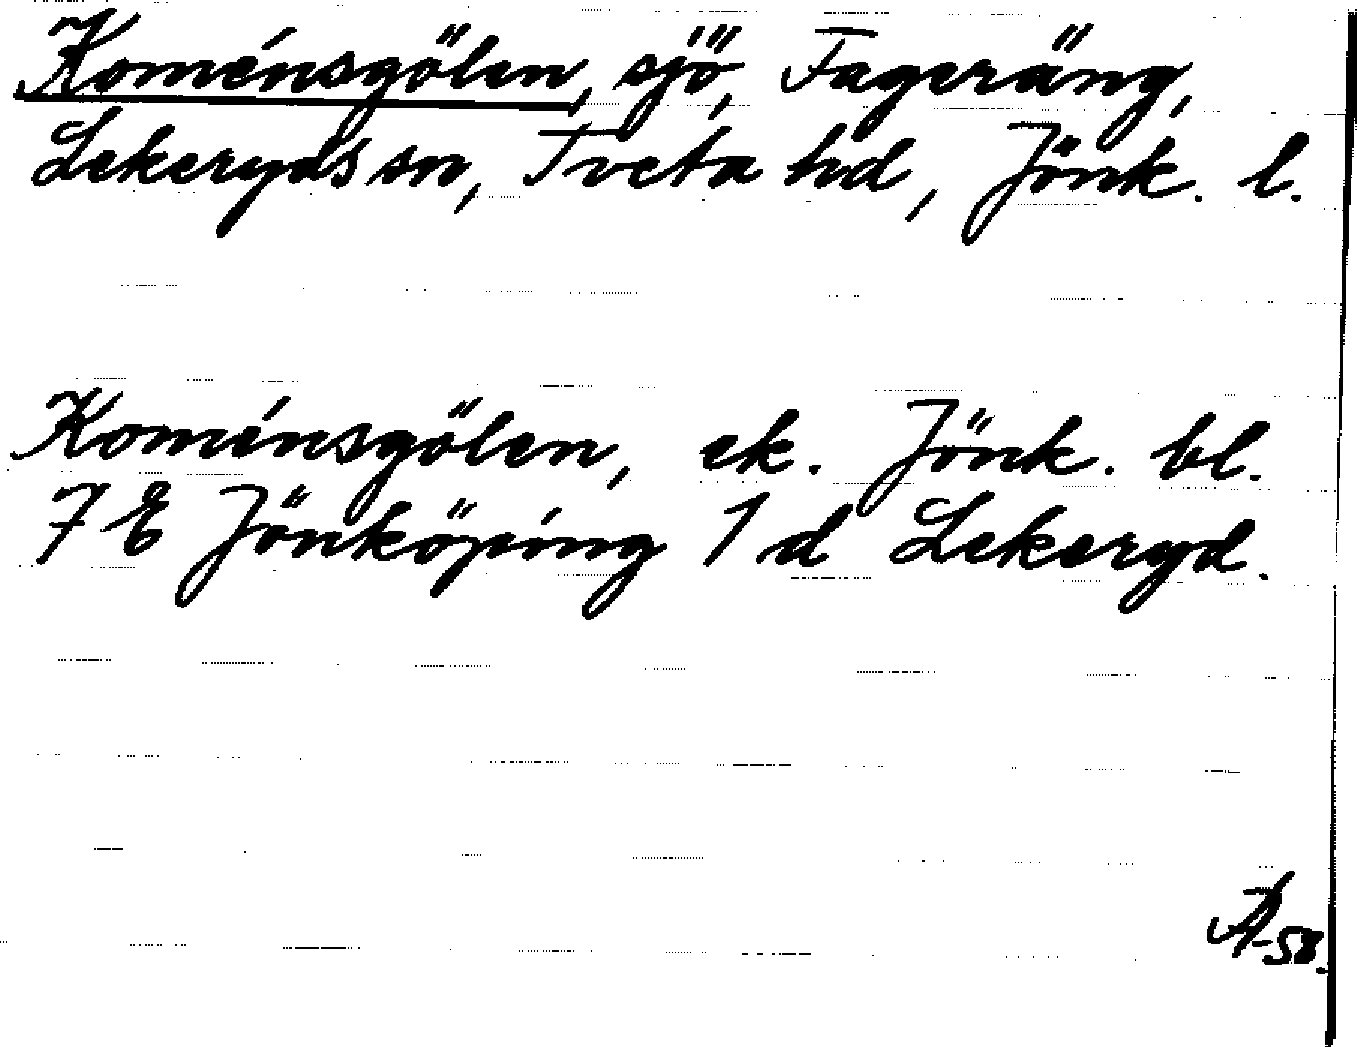 Koménsgölen, sjö, Fageräng,
Lekeryds sn, Tveta hd, Jönk. l.
Koménsgölen, ek. Jönk. bl.
7 E Jönköping 1 d Lekeryd.